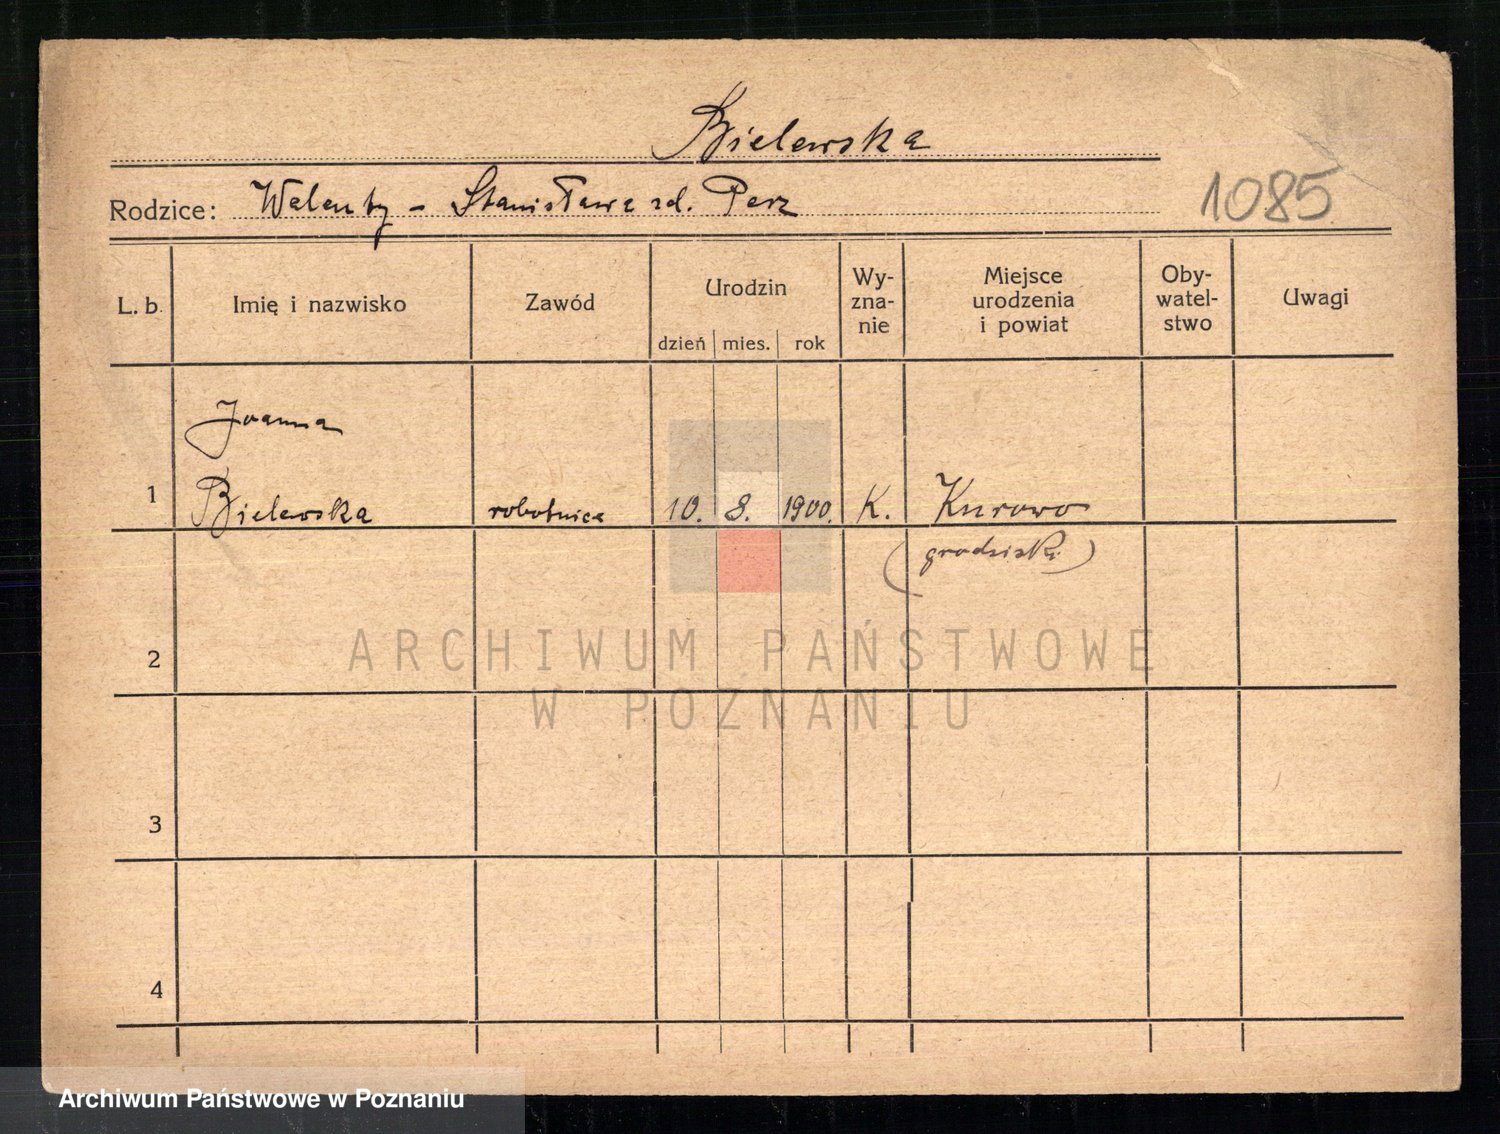 Bielewska
Rodzice: Walenty - Stanisława zd. Perz
1085
L. b. Imię i nazwisko Zawód Urodzin Wy-zna-nie Miejsce urodzenia i powiat Oby-watel-stwo Uwagi
dzień mies. rok
Joanna
1 Bielewska robotnica 10. 8. 1900. K. Kurowo
(grodziski)
2
3
4
ARCHIWUM PAŃSTWOWE
W POZNANIU
Archiwum Państwowe w Poznaniu